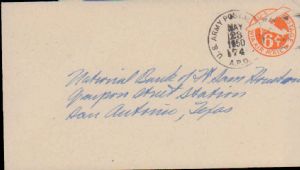 U.S. ARMY POSTAL
MAY
23
1950
74
A.P.O.
6¢
National Bank of Ft Sam Houston
Grayson Street Station
San Antonio, Texas